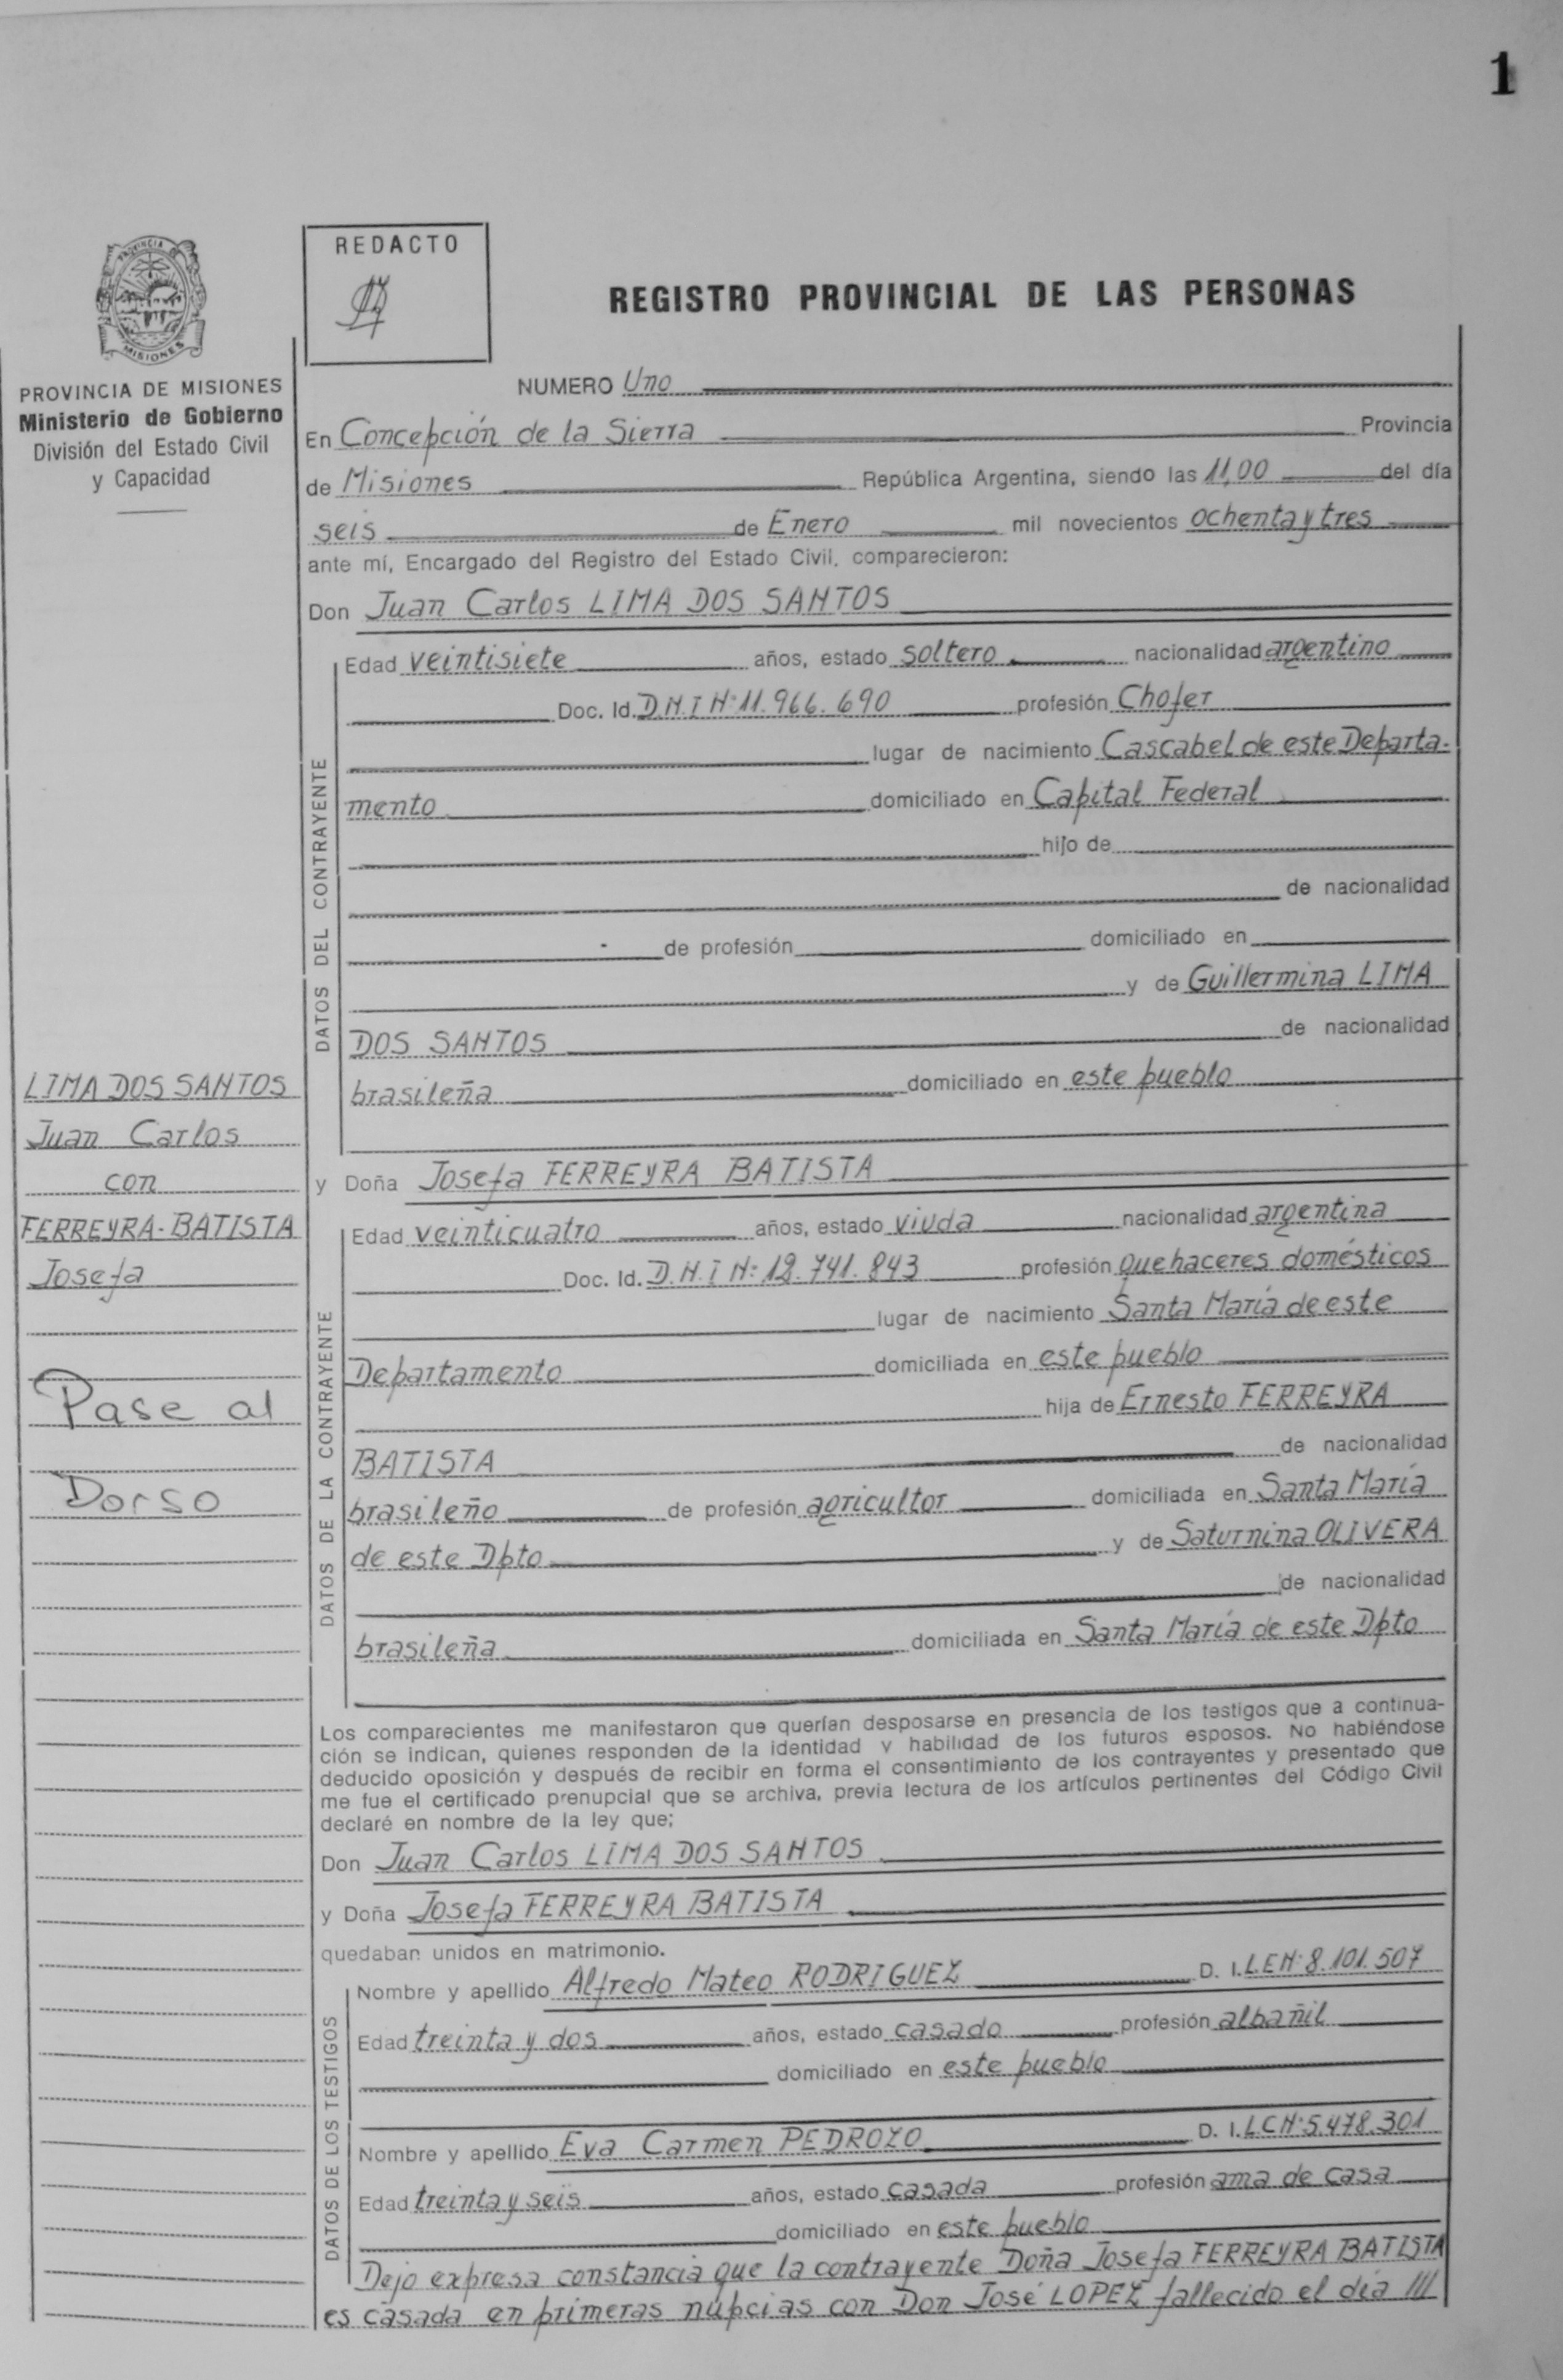 1
REDACTO
REGISTRO PROVINCIAL DE LAS PERSONAS
PROVINCIA
MISIONES
PROVINCIA DE MISIONES
Ministerio de Gobierno
División del Estado Civil
y Capacidad
NUMERO Uno
En Concepción de la Sierra Provincia
de Misiones República Argentina, siendo las 11,00 del día
seis de Enero mil novecientos ochenta y tres
ante mí, Encargado del Registro del Estado Civil, comparecieron:
Don Juan Carlos LIMA DOS SANTOS
DATOS DEL CONTRAYENTE
Edad veintisiete años, estado soltero nacionalidad argentino
Doc. Id. D.N.I Nº 11.966.690 profesión Chofer
lugar de nacimiento Cascabel de este Departa-
mento domiciliado en Capital Federal
hijo de
de nacionalidad
de profesión domiciliado en
y de Guillermina LIMA
DOS SANTOS de nacionalidad
brasileña domiciliado en este pueblo
LIMA DOS SANTOS
Juan Carlos
con
FERREYRA-BATISTA
Josefa
Pase al
Dorso
y Doña Josefa FERREYRA BATISTA
DATOS DE LA CONTRAYENTE
Edad veinticuatro años, estado viuda nacionalidad argentina
Doc. Id. D.N.I Nº 12.741.843 profesión quehaceres domésticos
lugar de nacimiento Santa María de este
Departamento domiciliada en este pueblo
hija de Ernesto FERREYRA
BATISTA de nacionalidad
brasileño de profesión agricultor domiciliada en Santa María
de este Dpto y de Saturnina OLIVERA
de nacionalidad
brasileña domiciliada en Santa María de este Dpto
Los comparecientes me manifestaron que querían desposarse en presencia de los testigos que a continua-
ción se indican, quienes responden de la identidad y habilidad de los futuros esposos. No habiéndose
deducido oposición y después de recibir en forma el consentimiento de los contrayentes y presentado que
me fue el certificado prenupcial que se archiva, previa lectura de los artículos pertinentes del Código Civil
declaré en nombre de la ley que;
Don Juan Carlos LIMA DOS SANTOS
y Doña Josefa FERREYRA BATISTA
quedaban unidos en matrimonio.
DATOS DE LOS TESTIGOS
Nombre y apellido Alfredo Mateo RODRIGUEZ D. I. LE Nº 8.101.507
Edad treinta y dos años, estado casado profesión albañil
domiciliado en este pueblo
Nombre y apellido Eva Carmen PEDROZO D. I. LC Nº 5.478.301
Edad treinta y seis años, estado casada profesión ama de casa
domiciliado en este pueblo
Dejo expresa constancia que la contrayente Doña Josefa FERREYRA BATISTA
es casada en primeras nupcias con Don José LOPEZ fallecido el día ///